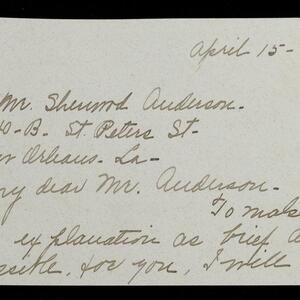 April 15-
Mr. Sherwood Anderson-
0-B. St. Peters St-
New Orleans- La-
my dear Mr. Anderson-
To mak
explanation as brief a
ssible, for you, I will